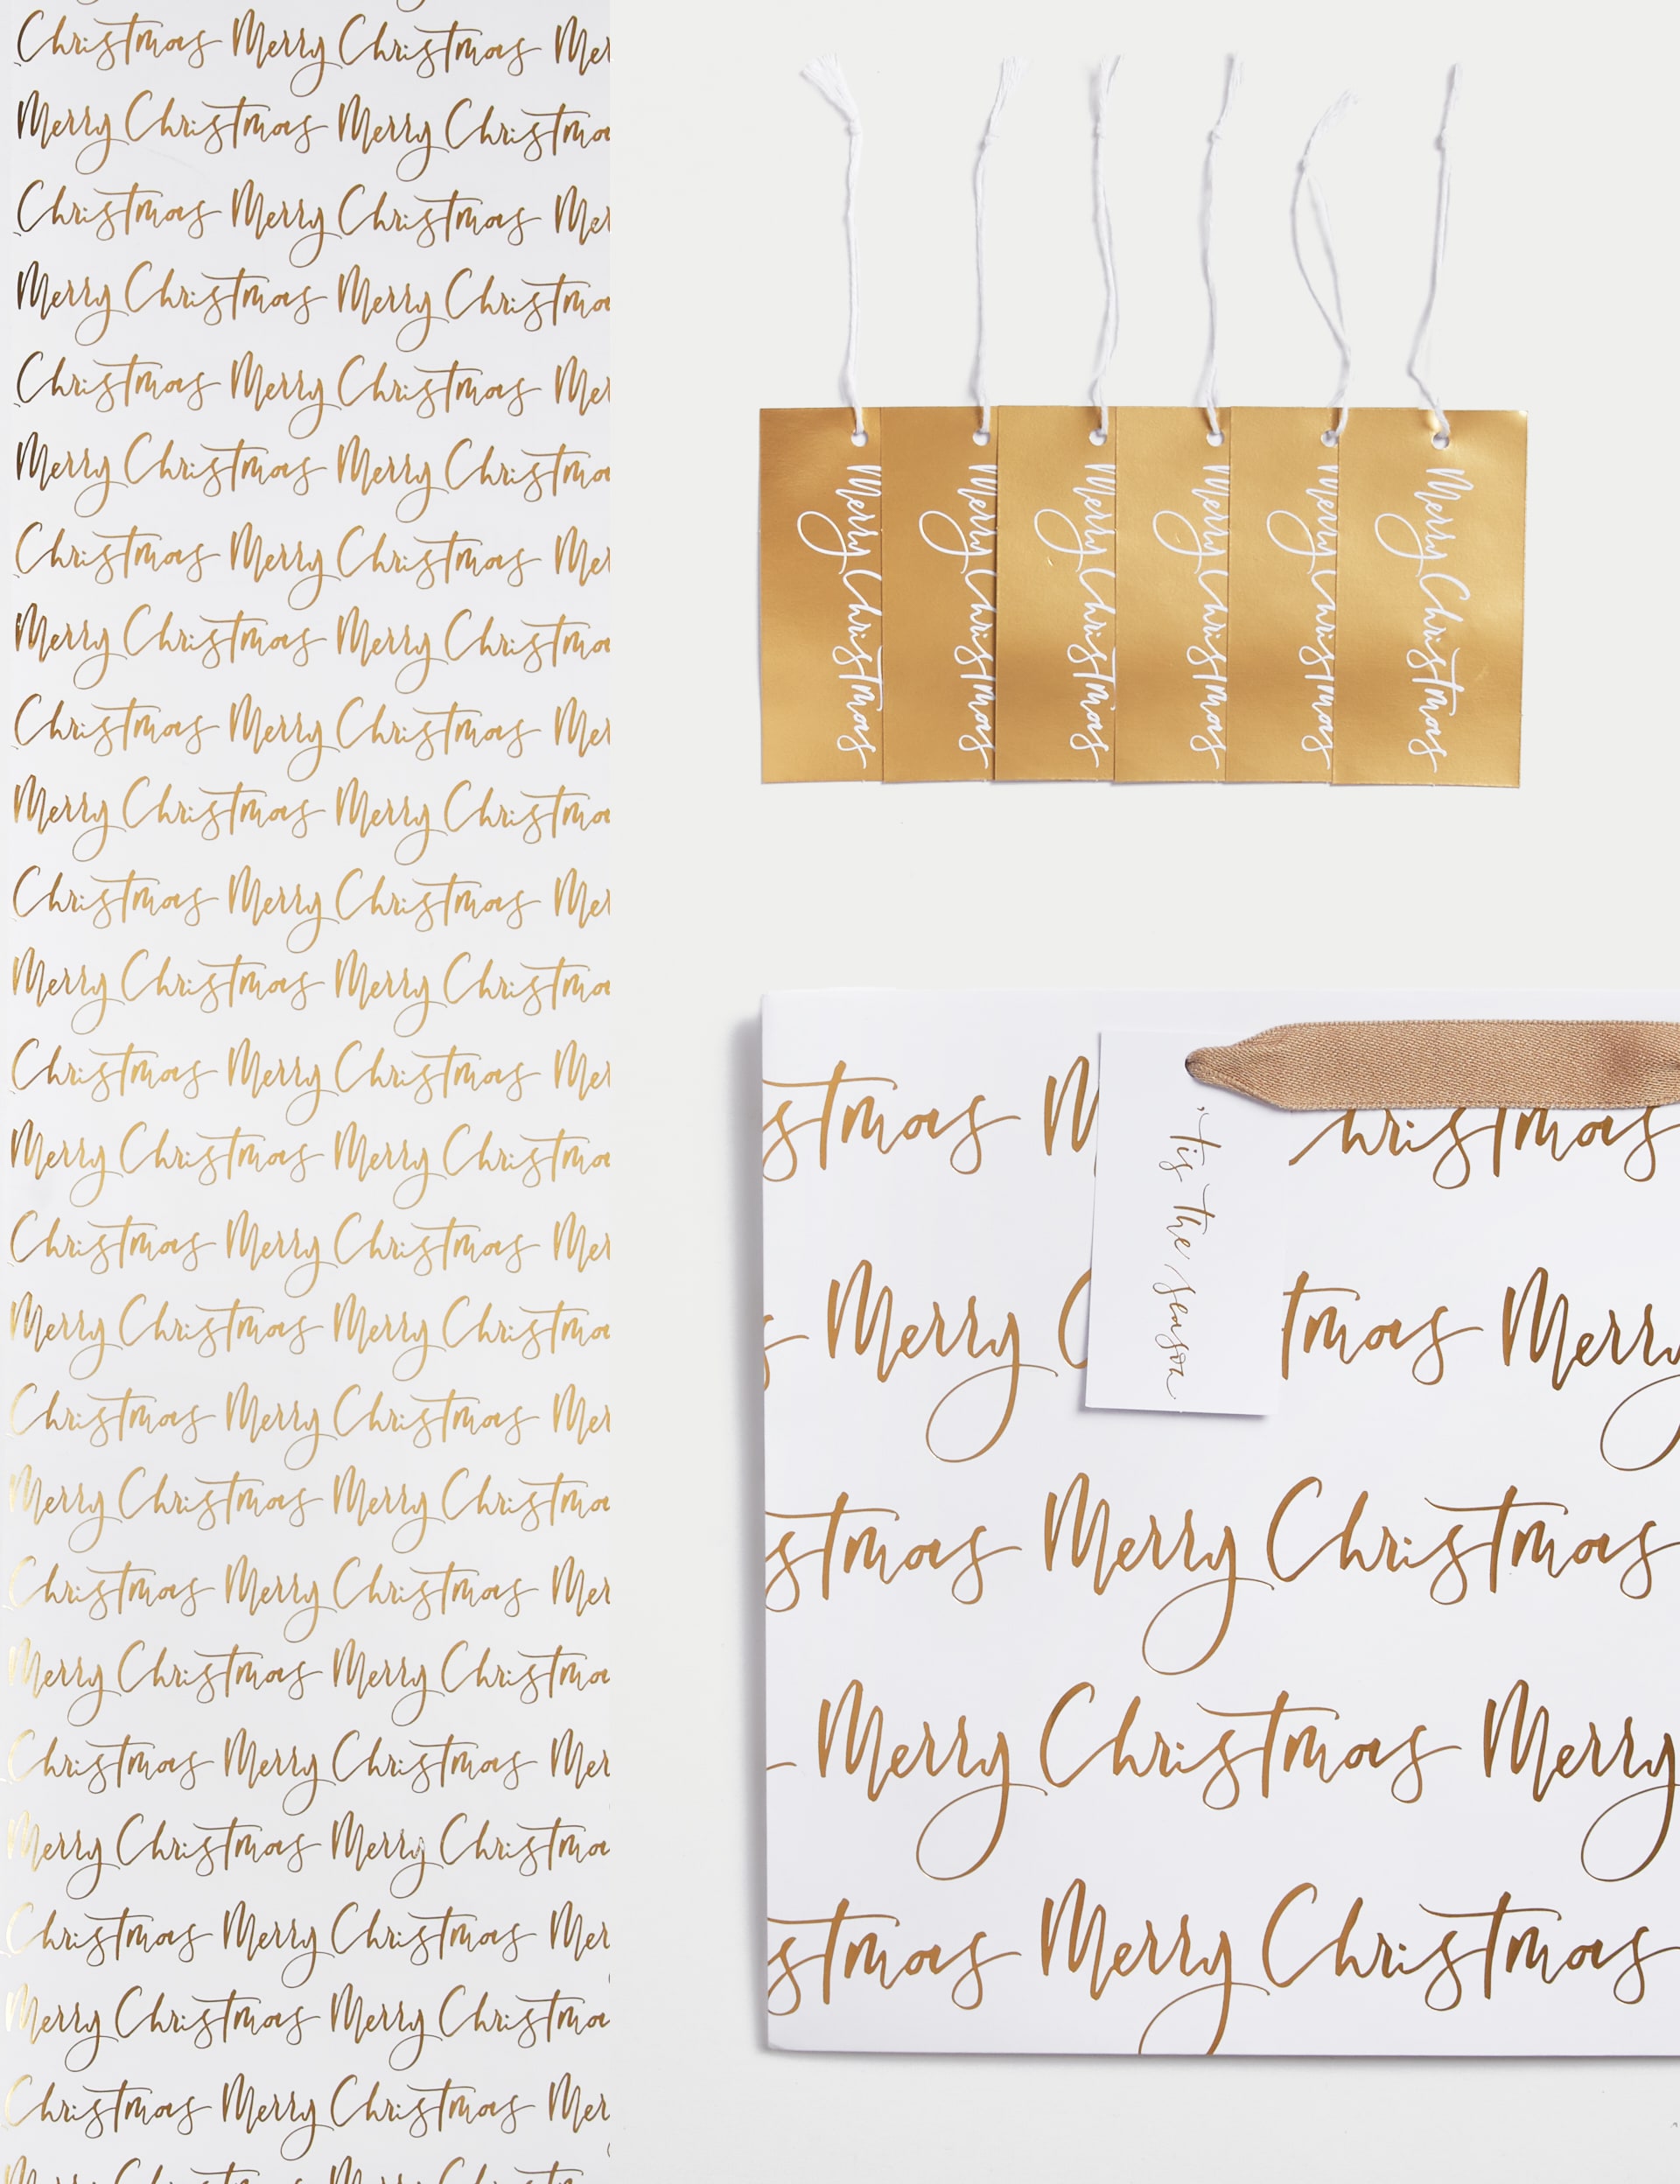 Christmas Merry Christmas Mer
Merry Christmas Merry Christma
Christmas Merry Christmas Mer
Merry Christmas Merry Christma
Christmas Merry Christmas Mer
Merry Christmas Merry Christma
Christmas Merry Christmas Mer
Merry Christmas Merry Christma
Christmas Merry Christmas Mer
Merry Christmas Merry Christma
Christmas Merry Christmas Mer
Merry Christmas Merry Christma
Christmas Merry Christmas Mer
Merry Christmas Merry Christma
Christmas Merry Christmas Mer
Merry Christmas Merry Christma
Christmas Merry Christmas Mer
Merry Christmas Merry Christma
Christmas Merry Christmas Mer
Merry Christmas Merry Christma
Christmas Merry Christmas Mer
Merry Christmas Merry Christma
Christmas Merry Christmas Mer
Merry Christmas Merry Christma
Christmas Merry Christmas Mer
Merry Christmas
Merry Christmas
Merry Christmas
Merry Christmas
Merry Christmas
Merry Christmas
'tis the season
stmas M hristmas
s Merry C tmas Merry
stmas Merry Christmas
Merry Christmas Merry
stmas Merry Christmas